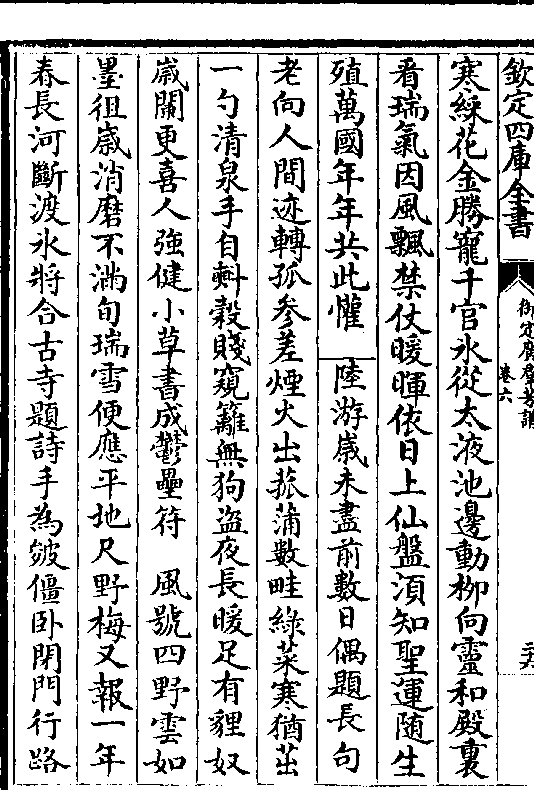 欽定四庫全書
御定廣羣芳譜
卷六
二六
寒綵花金勝寵千官氷從太液池邊動柳向靈和殿裏
看瑞氣因風飄禁仗暖暉依日上仙盤湏知聖運随生
殖萬國年年共此懽　陸游歳未盡前數日偶題長句
老向人間迹轉孤參差煙火出菰蒲數畦綠菜寒猶茁
一勺清泉手自㪺穀賤窺籬無狗盗夜長暖足有貍奴
歳闌更喜人強健小草書成鬱壘符　風號四野雲如
墨徂歳消磨不滿旬瑞雪便應平地尺野梅又報一年
春長河斷渡氷將合古寺題詩手為皴僵卧閉門行路